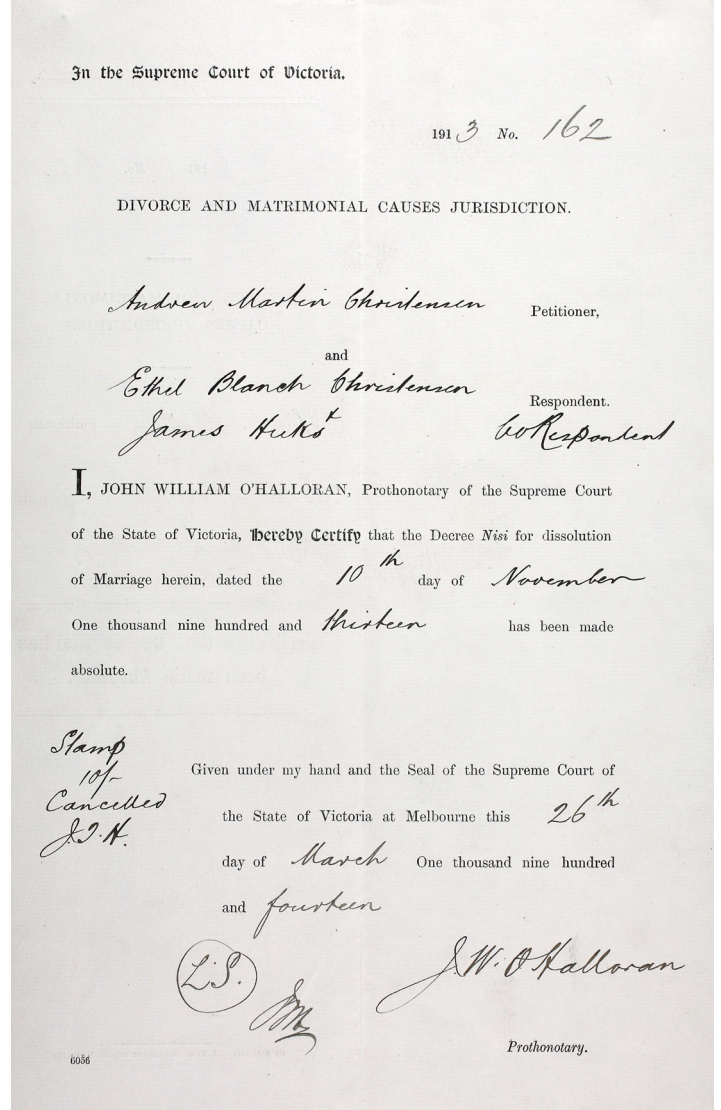 In the Supreme Court of Victoria.
1913 No. 162
DIVORCE AND MATRIMONIAL CAUSES JURISDICTION.
Andrew Martin Christensen Petitioner,
and
Ethel Blanch Christensen Respondent.
James Hicks CoRespondent
I, JOHN WILLIAM O'HALLORAN, Prothonotary of the Supreme Court
of the State of Victoria, Hereby Certify that the Decree Nisi for dissolution
of Marriage herein, dated the 10th day of November
One thousand nine hundred and thirteen has been made
absolute.
Stamp
10/-
Cancelled
Given under my hand and the Seal of the Supreme Court of
the State of Victoria at Melbourne this 26th
day of March One thousand nine hundred
and fourteen
L.S.
J. W. O'Halloran
Prothonotary.
6056